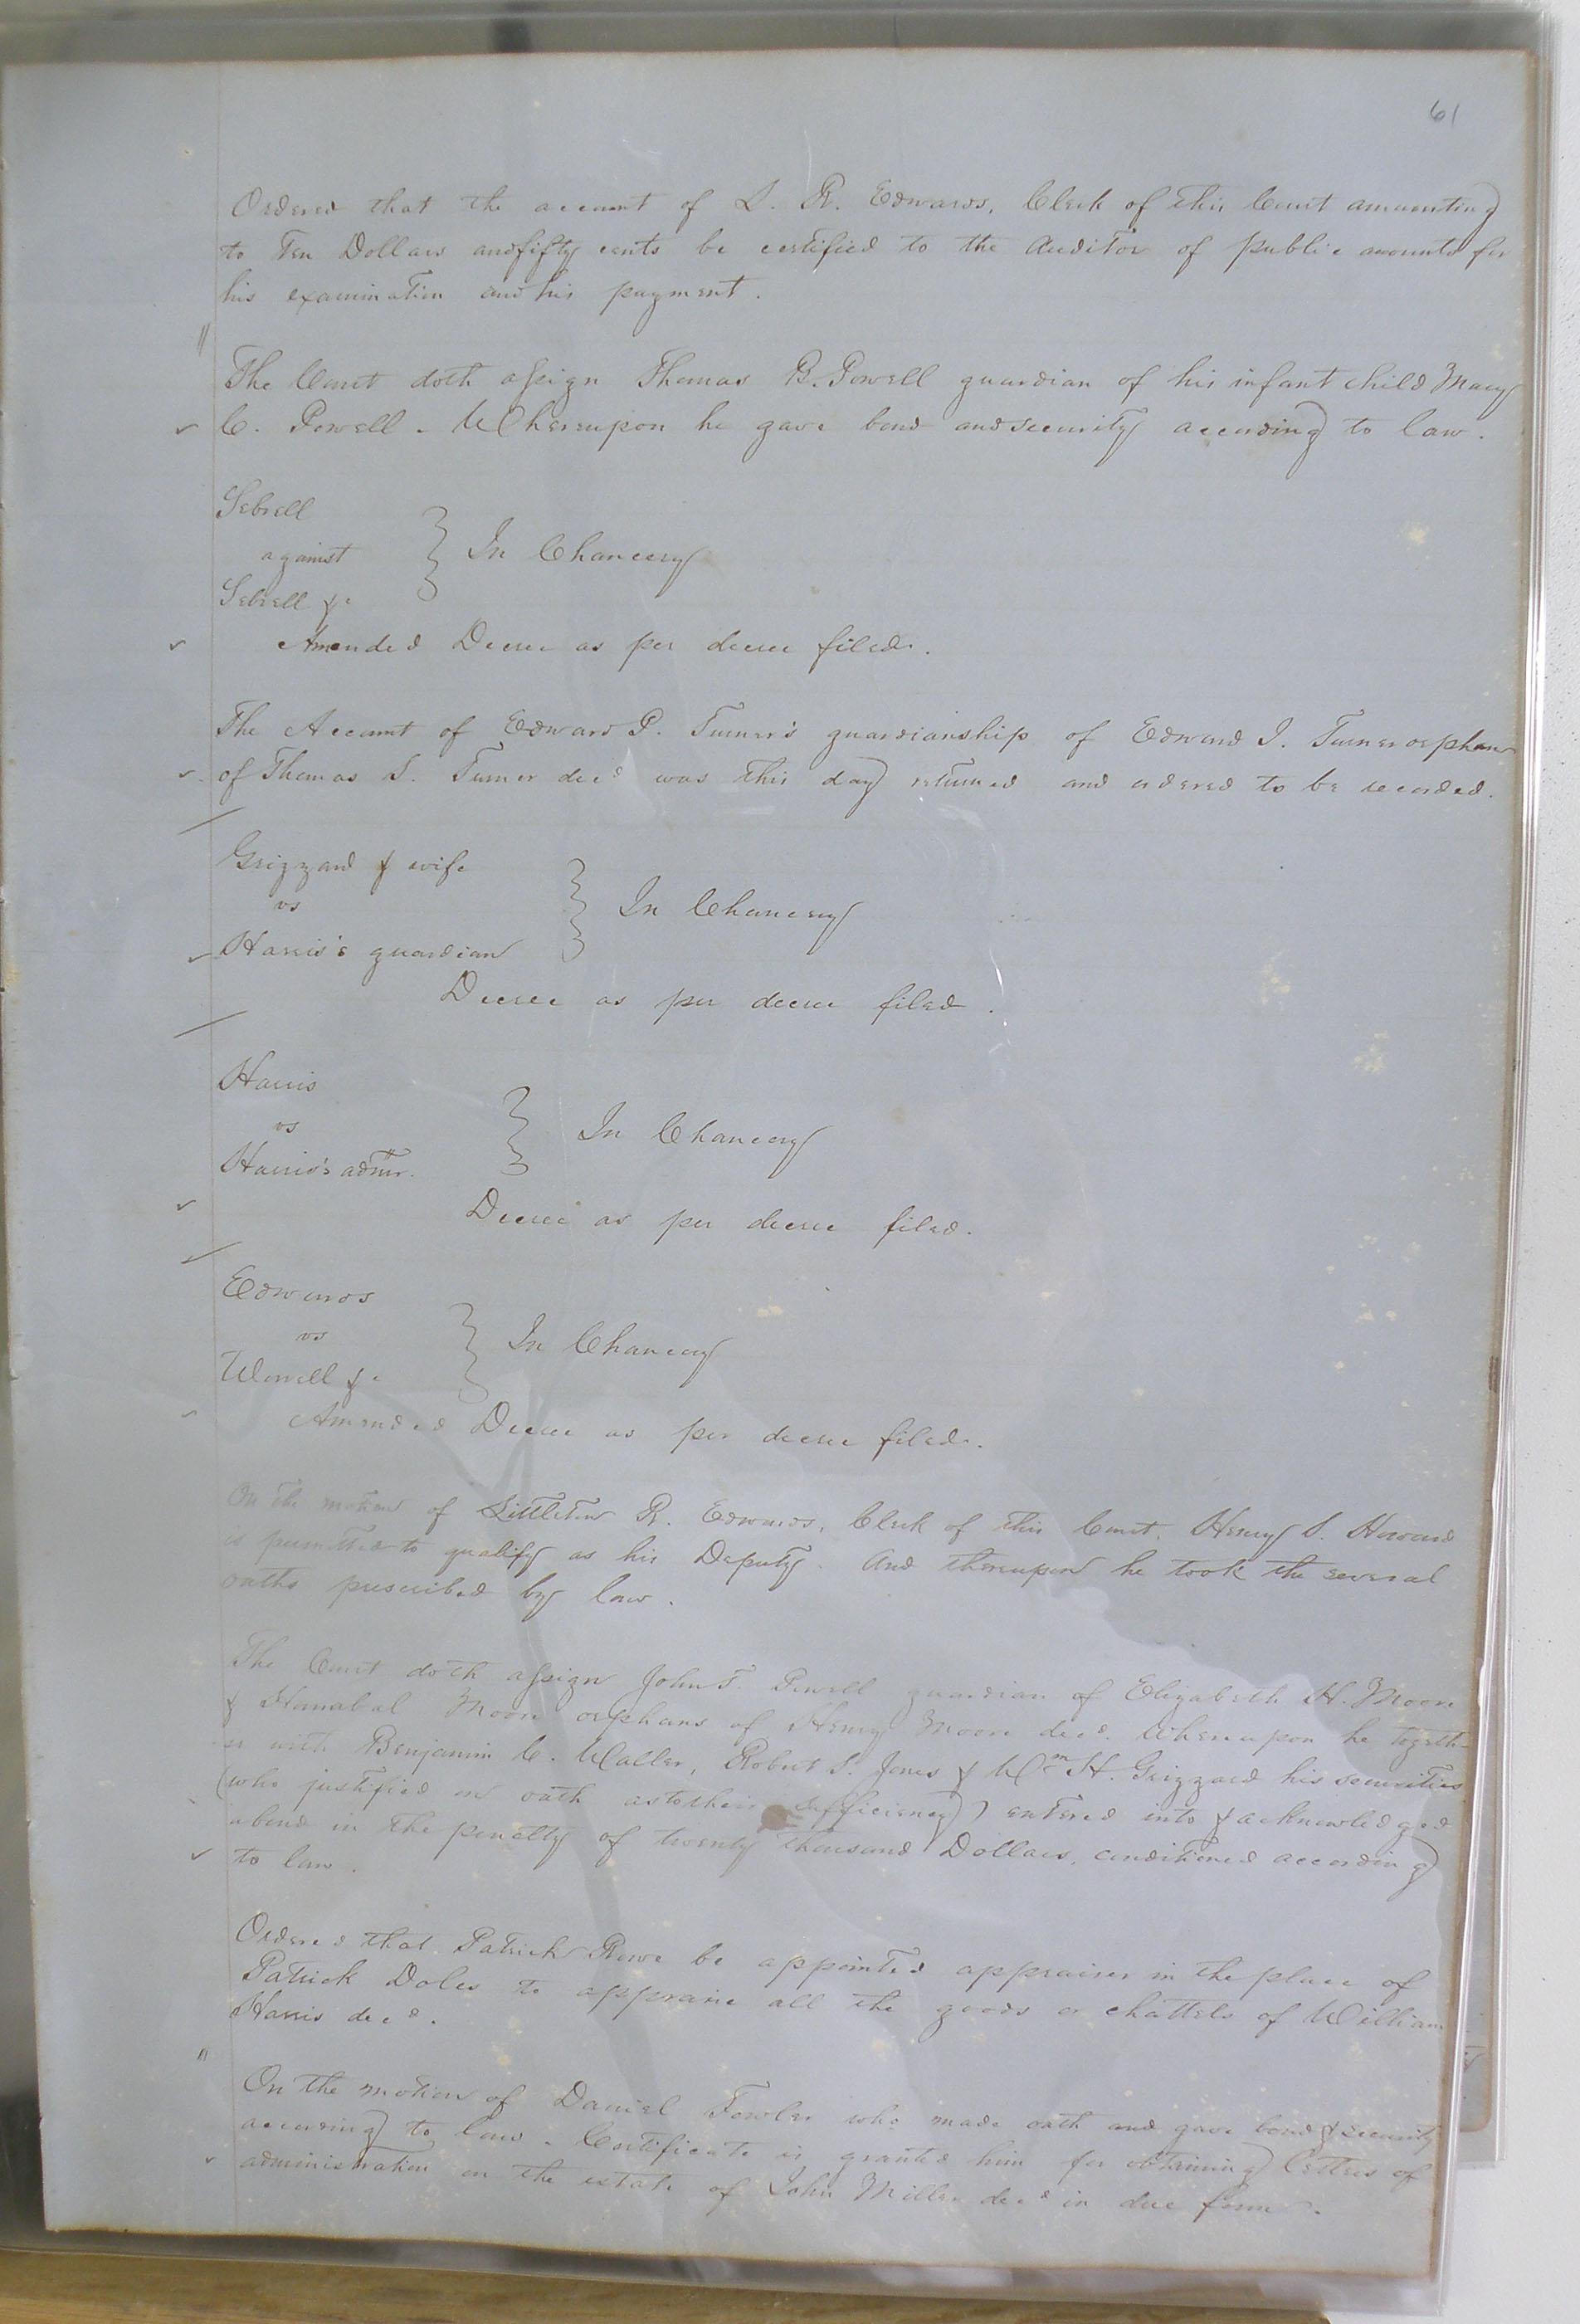 61
Ordered that the account of L. R. Edwards, Clerk of this Court amounting
to Ten Dollars and fifty cents be certified to the Auditor of public accounts for
his examination and his payment.
The Court doth assign Thomas B. Powell guardian of his infant child Mary
C. Powell. Whereupon he gave bond and security according to law.
Sebrell
against } In Chancery
Sebrell &c
Amended Decree as per decree filed.
The Account of Edward P. Turner's guardianship of Edward J. Turner orphan
of Thomas S. Turner decd was this day returned and ordered to be recorded.
Grizzard & wife
vs } In Chancery
Harris's guardian
Decree as per decree filed.
Harris
vs } In Chancery
Harris's admr.
Decree as per decree filed.
Edwards
vs } In Chancery
&c
Amended Decree as per decree filed.
On the motion of Littleton R. Edwards, Clerk of this Court, Henry S. Howard
is permitted to qualify as his Deputy. And thereupon he took the several
oaths prescribed by law.
The Court doth assign John T. Powell guardian of Elizabeth H. Moore
& Hanabal Moore orphans of Henry Moore decd. Whereupon he togeth-
er with Benjamin C. Waller, Robert S. Jones & Wm H. Grizzard his securities
(who justified on oath as to their sufficiency) entered into & acknowledged
a bond in the penalty of twenty thousand Dollars, conditioned according
to law.
Ordered that Patrick Rowe be appointed appraiser in the place of
Patrick Doles to appraise all the goods or chattels of William
Harris decd.
On the motion of Daniel Fowler who made oath and gave bond & security
according to law. Certificate is granted him for obtaining letters of
administration on the estate of John Miller decd in due form.